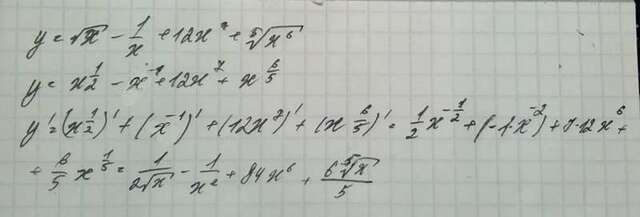 y = √x - 1/x + 12x⁷ + ⁵√x⁶
y = x^(1/2) - x^(-1) + 12x⁷ + x^(6/5)
y' = (x^(1/2))' + (x^(-1))' + (12x⁷)' + (x^(6/5))' = 1/2 x^(-1/2) + (-1·x^(-2)) + 7·12x⁶ +
+ 6/5 x^(1/5) = 1/(2√x) - 1/x² + 84x⁶ + 6⁵√x/5